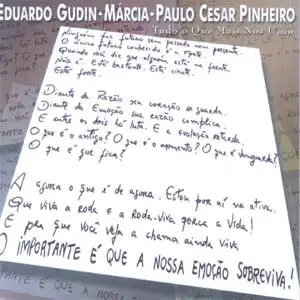 EDUARDO GUDIN·MÁRCIA·PAULO CESAR PINHEIRO
Tudo o Que Mais Nos Uniu
Ninguém faz futuro sem passado nem presente.
O único futuro conhecido é a morte.
Quando se diz que alguém está na frente,
Não é. Está bastante. Está
Está frente.
Diante da Razão seu coração se guarda.
Diante da Emoção sua razão complica.
E entre os dois há luta. E a evolução retarda.
O que é o antigo? O que é o momento? O que é vanguarda?
O que é que fica?
A agora o que é de agora. Estou por aí na ativa.
Que viva a roda e a roda-viva porca a vida!
E pra que você veja a chama ainda viva
O IMPORTANTE É QUE A NOSSA EMOÇÃO SOBREVIVA!